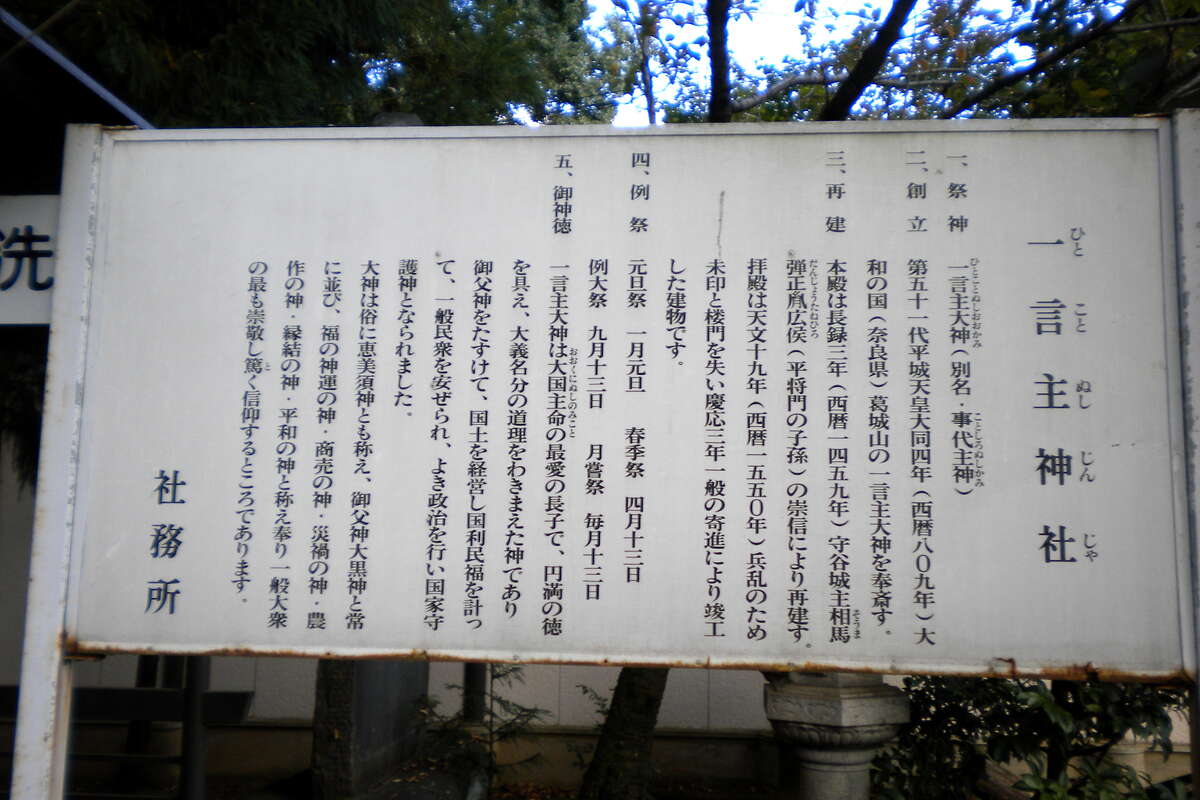 一言主神社
ひとことぬしじんじゃ
一、祭神　一言主大神（別名・事代主神）
ひとことぬしおおかみ　ことしろぬしかみ
二、創立　第五十一代平城天皇大同四年（西暦八〇九年）大
和の国（奈良県）葛城山の一言主大神を奉斎す。
三、再建　本殿は長録三年（西暦一四五九年）守谷城主相馬
そうま
弾正胤広侯（平将門の子孫）の崇信により再建す。
だんじょうたねひろ
拝殿は天文十九年（西暦一五五〇年）兵乱のため
未印と楼門を失い慶応三年一般の寄進により竣工
した建物です。
四、例祭　元旦祭　一月元旦　春季祭　四月十三日
例大祭　九月十三日　月嘗祭　毎月十三日
五、御神徳　一言主大神は大国主命の最愛の長子で、円満の徳
おおくにぬしのみこと
を具え、大義名分の道理をわきまえた神であり
御父神をたすけて、国土を経営し国利民福を計っ
て、一般民衆を安ぜられ、よき政治を行い国家守
護神となられました。
大神は俗に恵美須神とも称え、御父神大黒神と常
に並び、福の神運の神・商売の神・災禍の神・農
作の神・縁結の神・平和の神と称え奉り一般大衆
の最も崇敬し篤く信仰するところであります。
と
社務所
洗